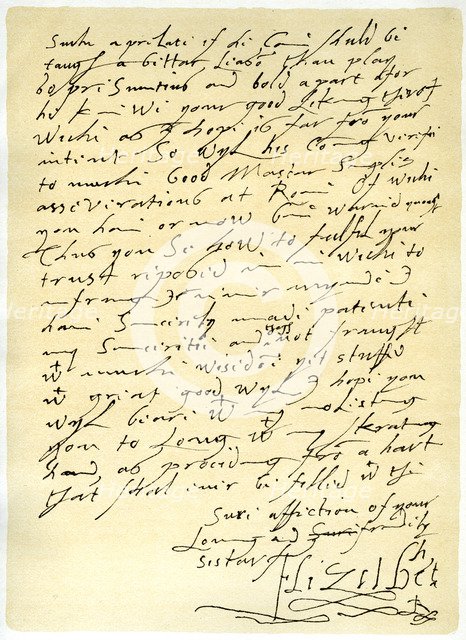 Suche a prelate if he come shuld be
taugh a bettar leason than play
so presumtius and bold a part afor
he knewe your good liking therof
wiche as I hope is far from your
intent So wyl his coming verefie
to muche Good Mastar Simples
asseverations at Rome Of wiche
you have or now bene warned ynough
Thus you se how to fulfil your
trust reposed in me wiche to
infringe I never mynde I
have sincerely made patente
my sinceritie and not fraught
wt muche wisedome yet stuffed
wt great good wyl I hope you
wyl beare wt my molesting
you to long wt my skrating
hand as proceding from a hart
that shal ever be filled wt the
Sure affection of your
Loving and frendely
sistar
Elizabeth R